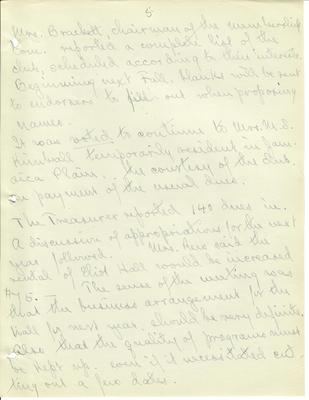 5
Mrs. Brackett, chairman of the membership
Com. reported a complete list of the
club, scheduled according to their interests.
Beginning next Fall, blanks will be sent
to endorsers to fill out when proposing
names.
It was voted to continue to Mrs. M. S.
Kimball temporarily resident in Jam-
aica Plain, the courtesy of the club
on payment of the usual dues.
The Treasurer reported 140 dues in.
A discussion of appropriations for the next
year followed. Mrs. said the
rental of Eliot Hall would be increased
$75. — The sense of the meeting was
that the business arrangement for the
Hall for next year, should be very definite.
Also that the quality of programs must
be kept up. even if it necessitated cut-
ting out a few dates.